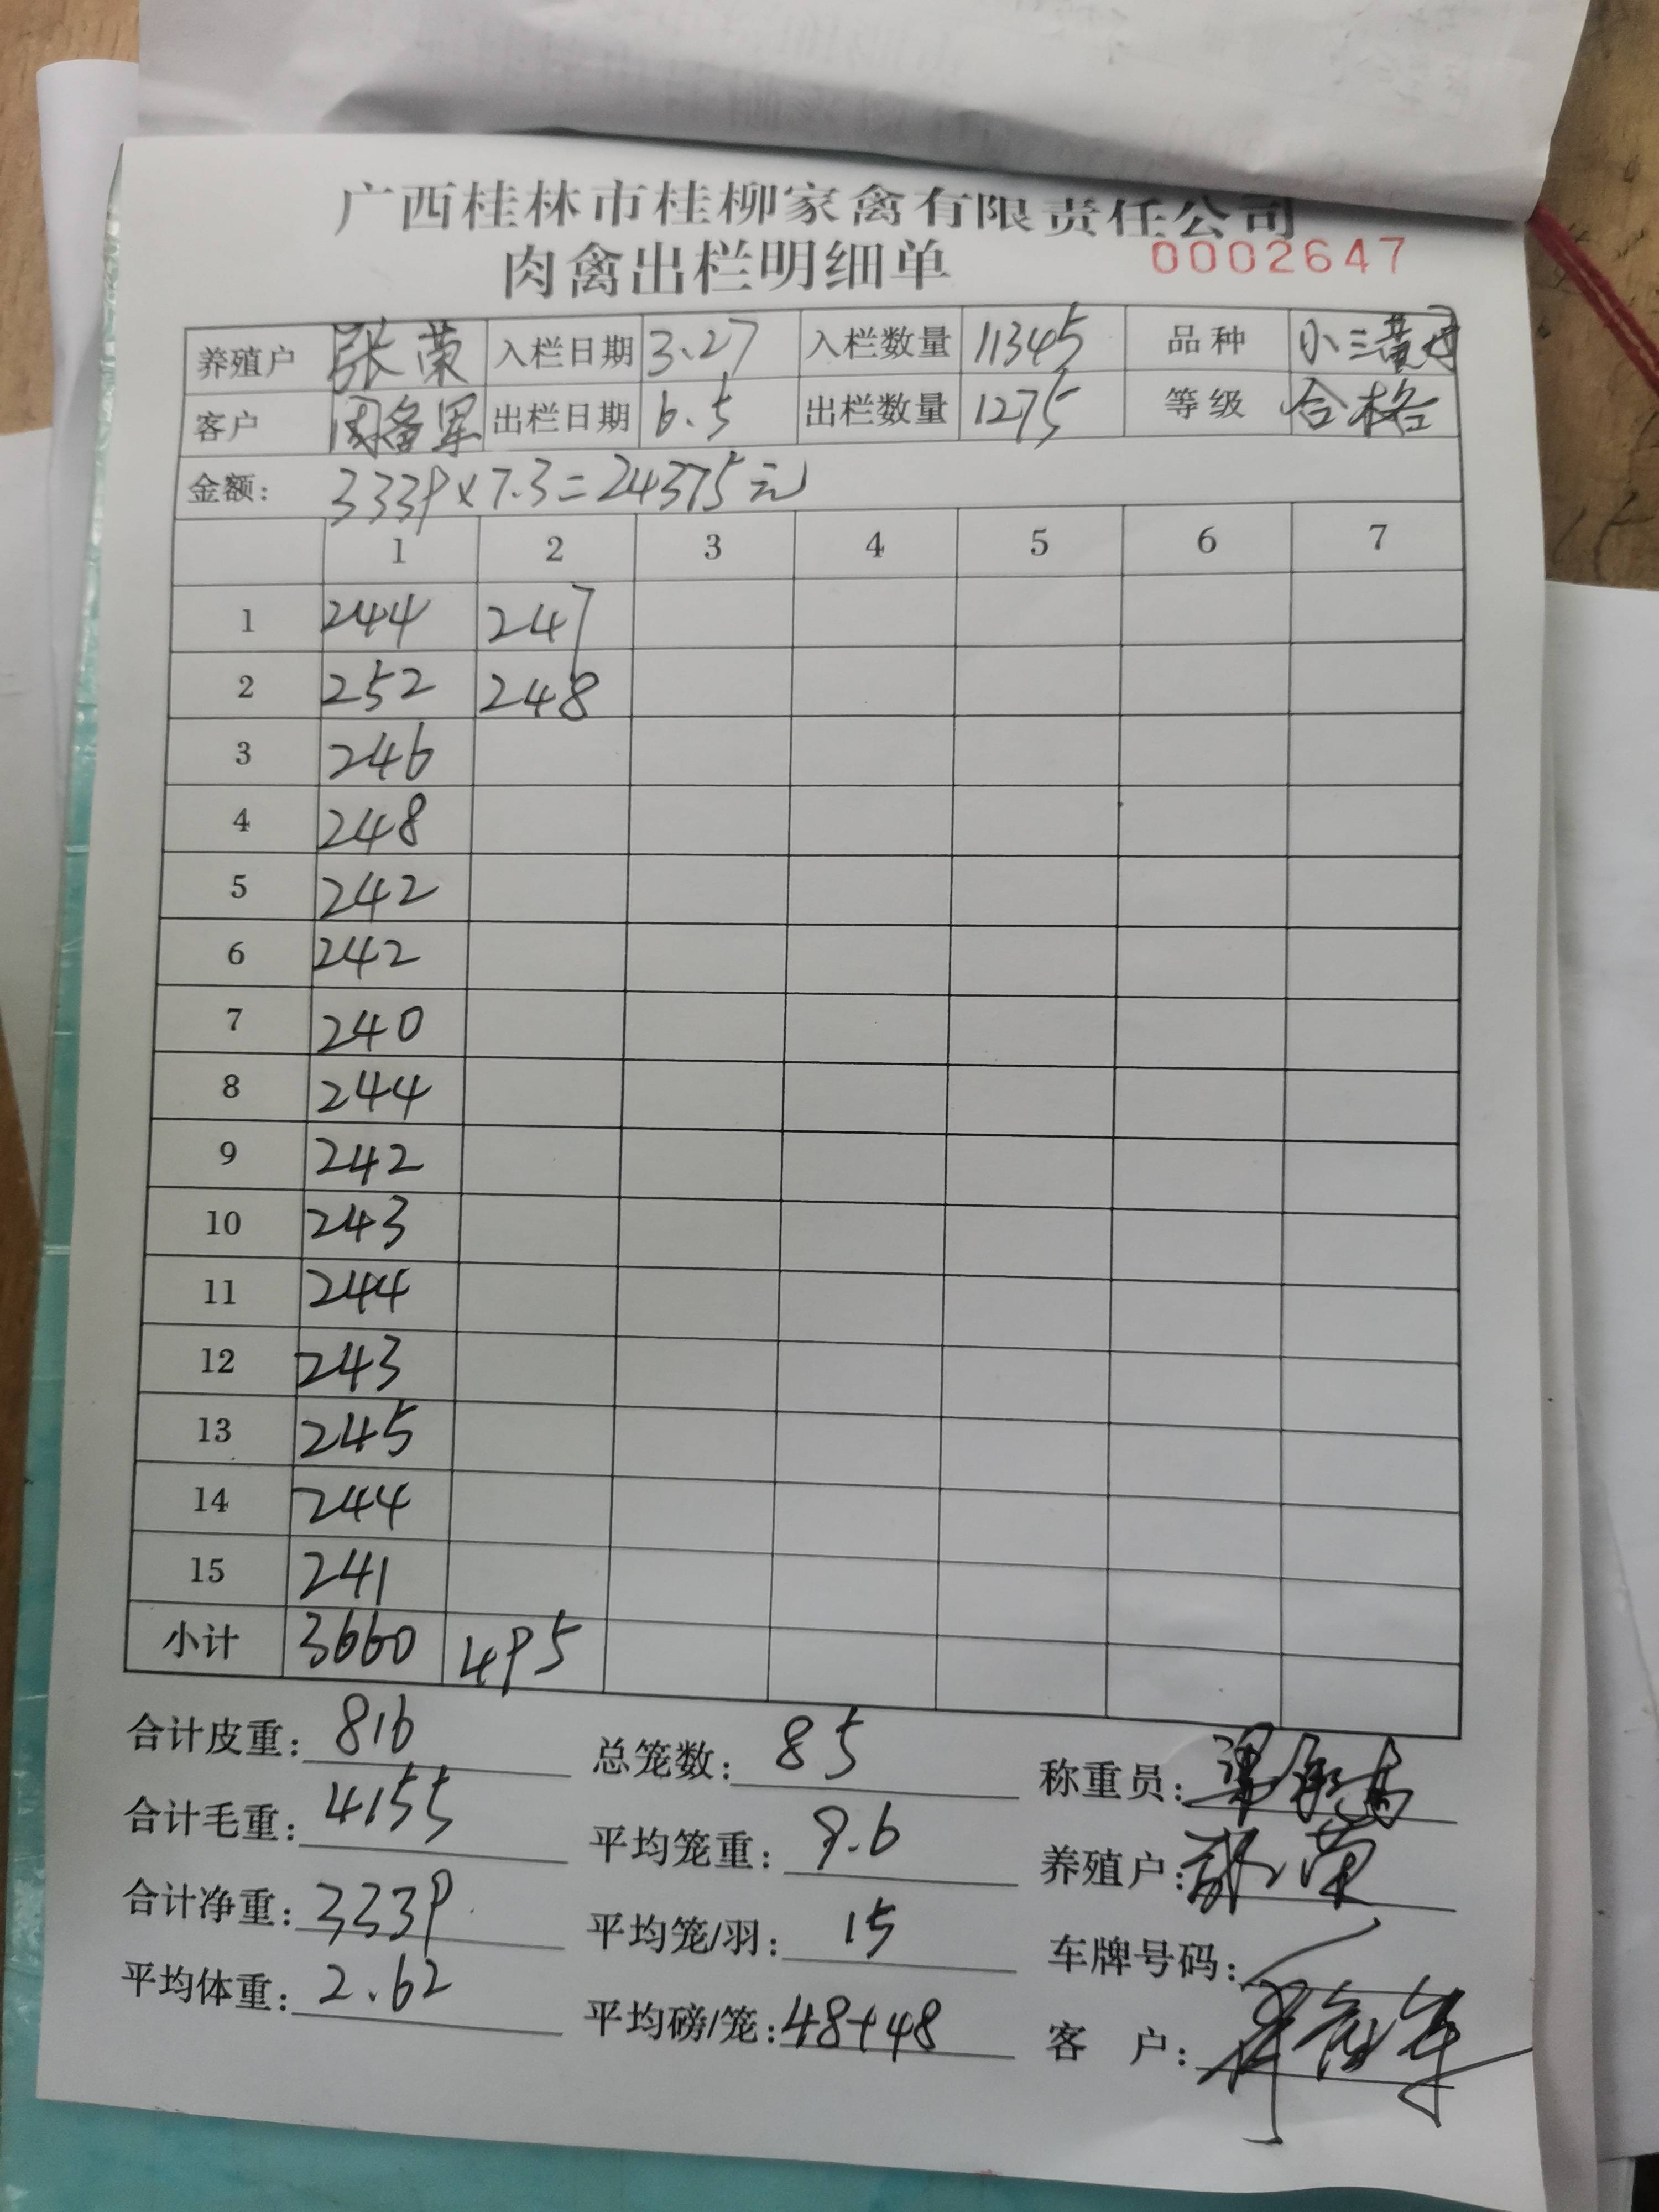 广西桂林市桂柳家禽有限责任公司
肉禽出栏明细单 0002647
养殖户 张荣 入栏日期 3.27 入栏数量 11345 品种 小三黄
客户 周备军 出栏日期 6.5 出栏数量 1275 等级 合格
金额: 3339×7.3=24375元
1 2 3 4 5 6 7
1 244 247
2 252 248
3 246
4 248
5 242
6 242
7 240
8 244
9 242
10 243
11 244
12 243
13 245
14 244
15 241
小计 3660 495
合计皮重: 816 总笼数: 85 称重员:
合计毛重: 4155 平均笼重: 9.6 养殖户: 张荣
合计净重: 3339 平均笼/羽: 15 车牌号码:
平均体重: 2.62 平均磅/笼: 48+48 客 户: